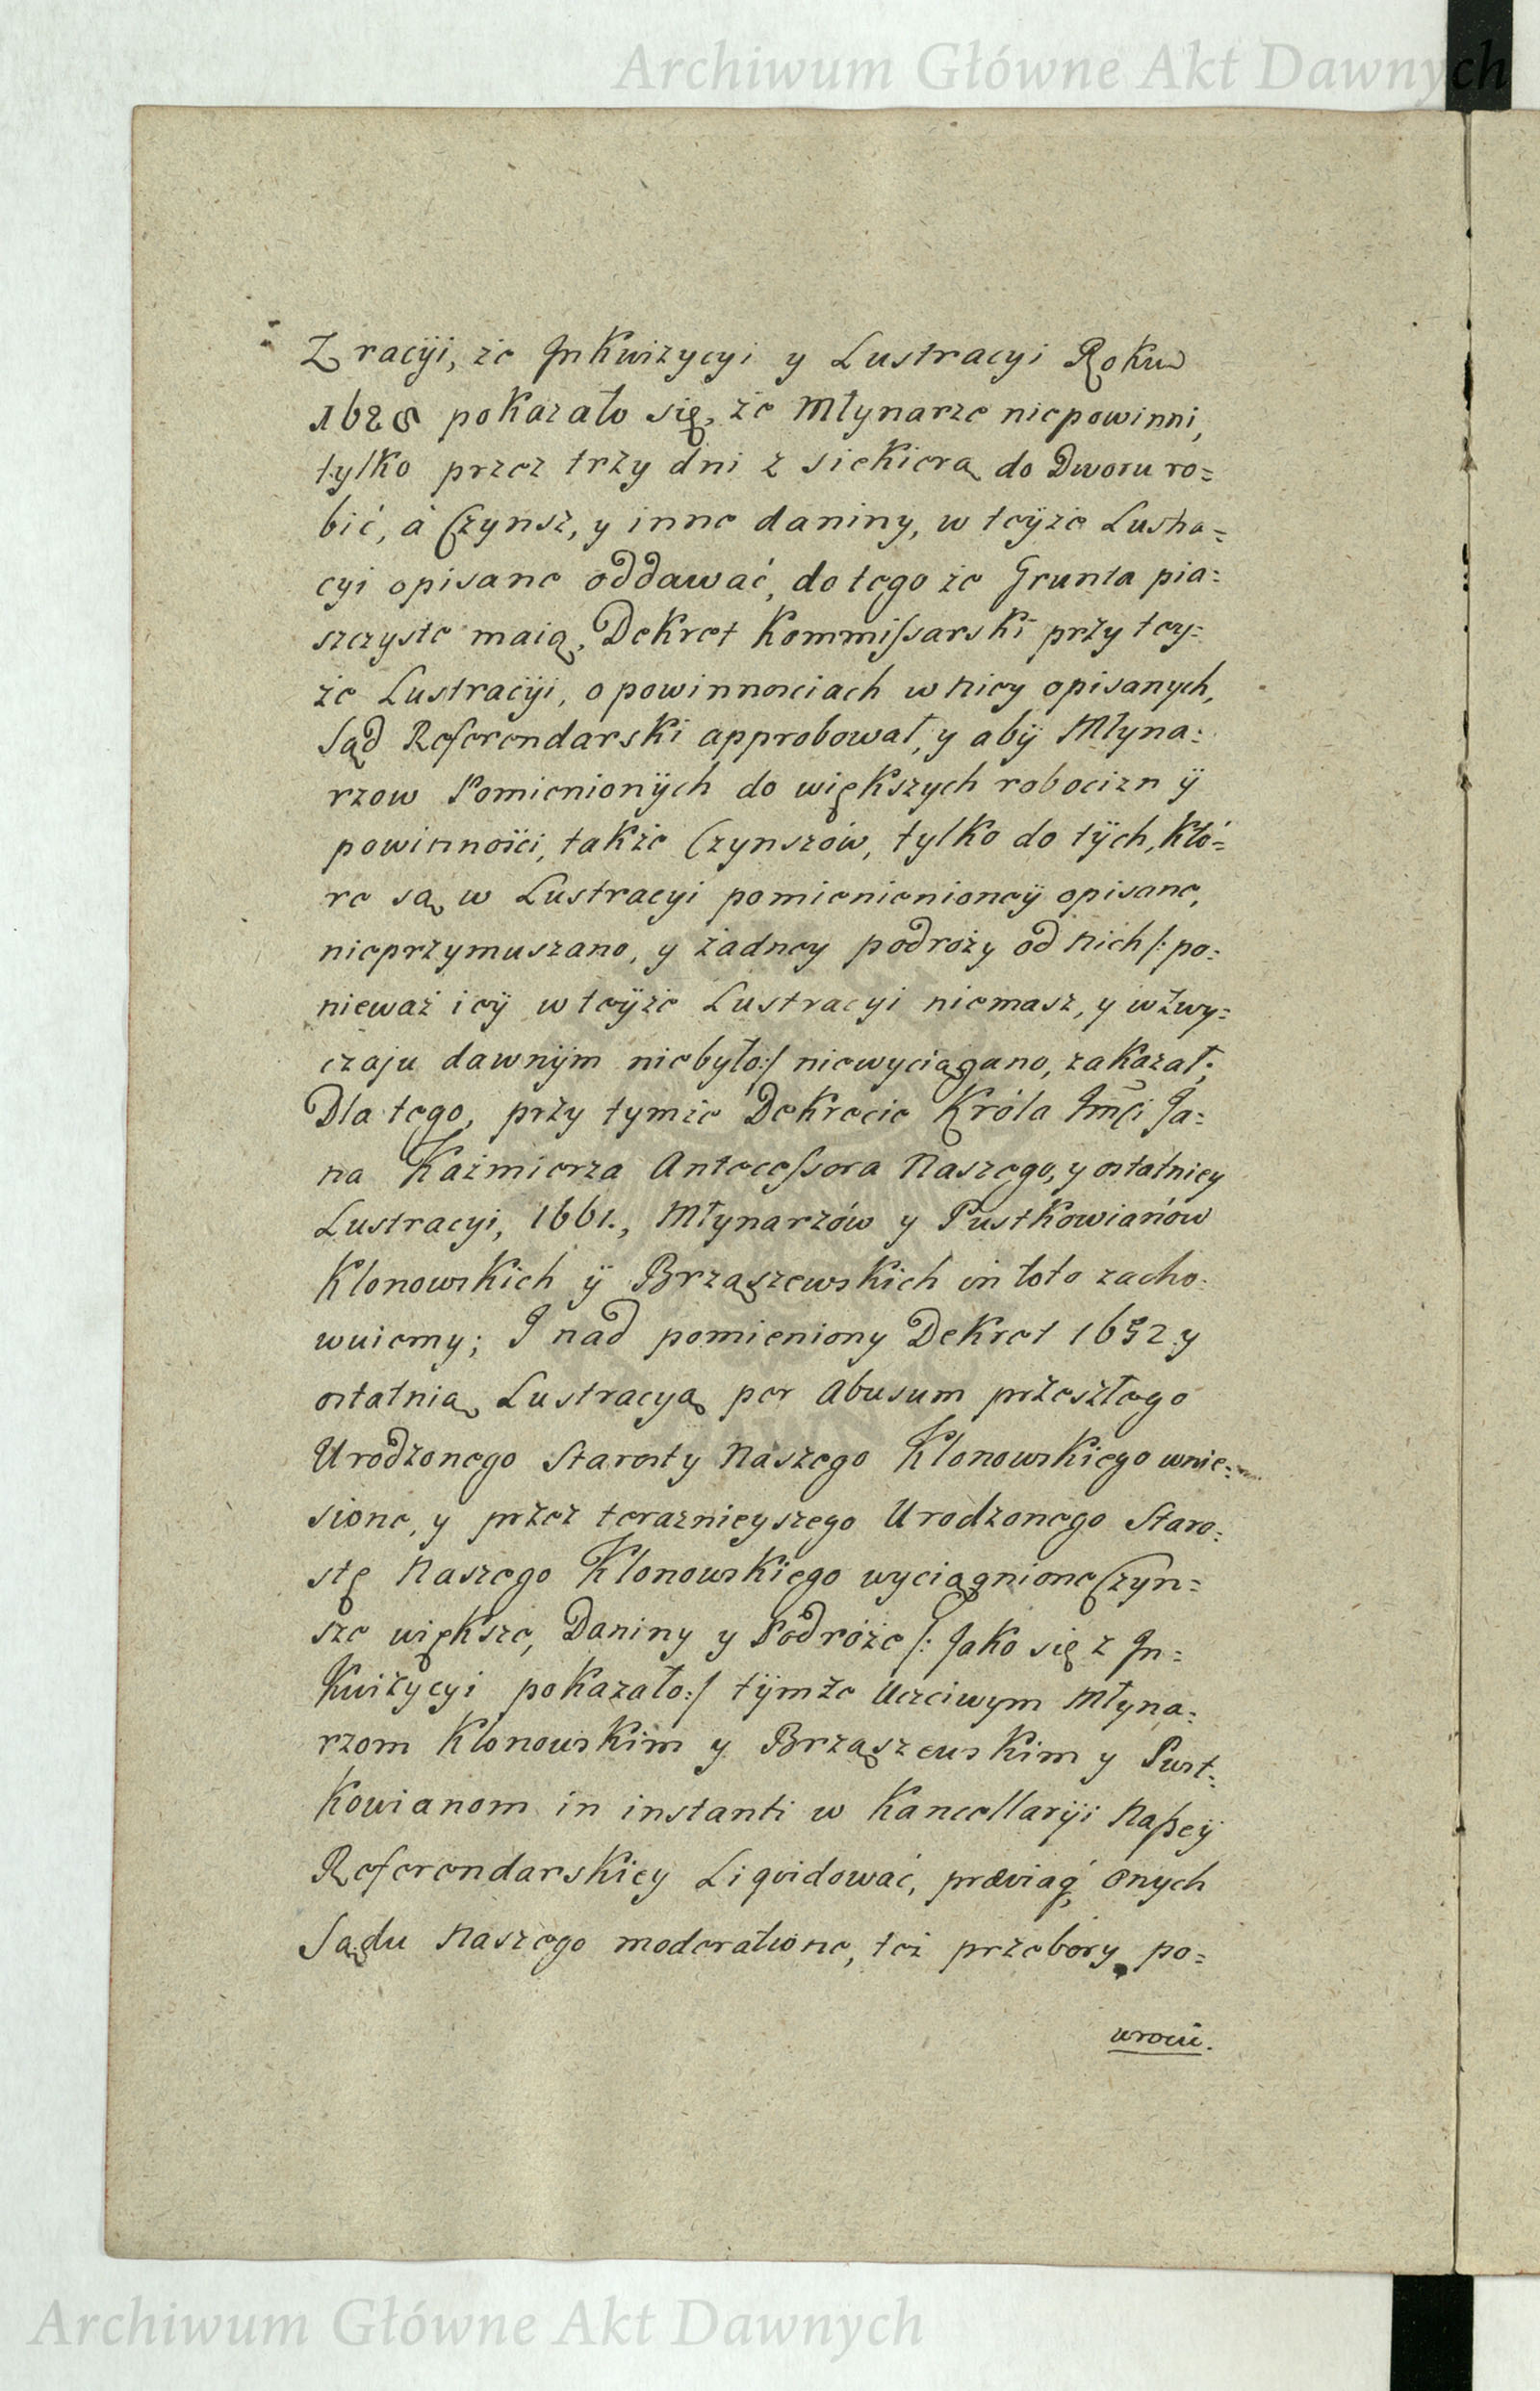 Archiwum Główne Akt Dawnych
Z racÿi, że Inkwizycyi y Lustracyi Roku
1628 pokazało się, że Młynarze niepowinni,
tylko przez trzy dni z siekierą do Dworu ro=
bić, à Czynsz, y inne daniny, w teÿże Lustra=
cyi opisane oddawać, do tego że Grunta pia=
szczyste maią, Dekret Kommissarski przy tey=
że Lustracÿi, o powinnosciach w niey opisanych,
Sąd Referendarski approbował, y abÿ Młyna=
rzow Pomienionÿch do większych robocizn ÿ
powinności, także Czynszów, tylko do tÿch, któ=
re są w Lustracyi pomienienioneÿ opisane,
nieprzymuszano, y żadney podroży od nich /: po=
nieważ ieÿ w teÿże Lustracyi niemasz, y w Zwy=
czaju dawnÿm niebyło :/ niewyciągano, zakazał;
Dla tego, przy tymże Dekrecie Króla Jmci Ja=
na Kaźmierza Antecessora Naszego, y ostatniey
Lustracyi, 1661., Młynarzów y Pustkowianów
Klonowskich ÿ Brząszewskich in toto zacho=
wuiemy; I nad pomieniony Dekret 1652 y
ostatnią Lustracyą per Abusum przeszłego
Urodzonego Starosty Naszego Klonowskiego wnie=
sione, y przez teraznieyszego Urodzonego Staro=
stę Naszego Klonowskiego wyciągnione Czyn=
sze większe, Daniny y Podróże /: Jako się z In=
kwizycyi pokazało :/ tÿmże Uczciwym Młyna=
rzom Klonowskim y Brząszewskim y Pust=
kowianom in instanti w Kancellarÿi Naszeÿ
Referendarskiey Liqvidować, præviaq́, onych
Sądu Naszego moderatione, też przebory po=
wrocic.
Archiwum Główne Akt Dawnych